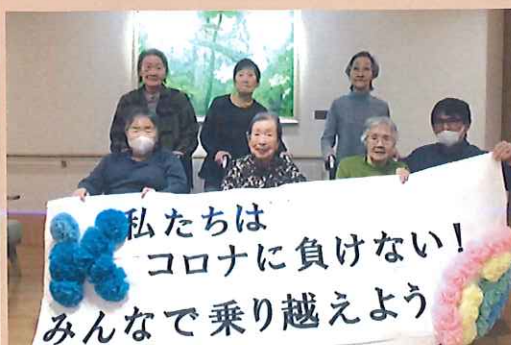 私たちは
コロナに負けない!
みんなで乗り越えよう